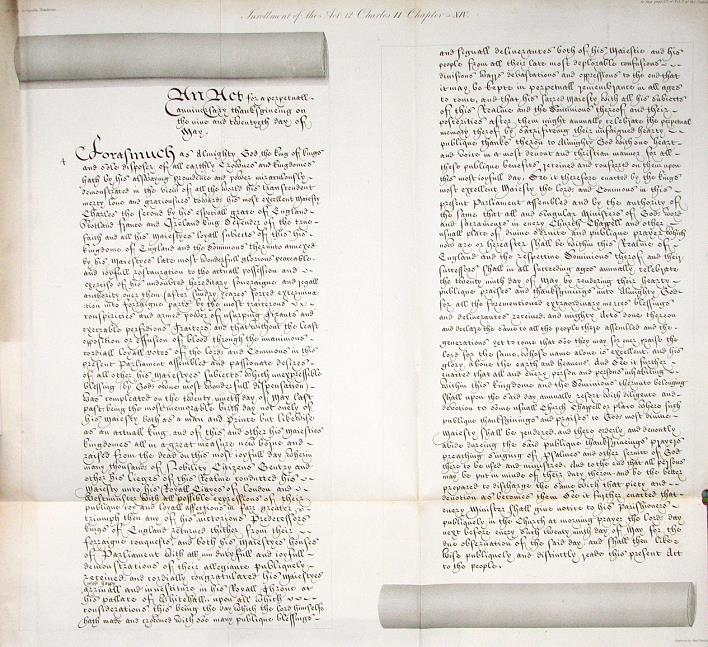 Inrollment of the Act 12 Charles II Chapter XIV.
An Act for a perpetuall
Anniversary thanksgiveing on
the nine and twentyeth day of
May.
Forasmuch as Almighty God the king of kings
and sole disposer of all earthly Crownes and kingdomes
hath by his allswaying providence and power miraculously
demonstrated in the view of all the world his transcendent
mercy love and gratiousnes towards his most excellent Majesty
Charles the second by his especiall grace of England
Scotland france and Ireland king Defender of the true
faith and all his Majestyes loyall subjects of this his
kingdome of England and the Dominions thereunto annexed
by his Majestyes late most wonderfull glorious peaceable
and joyfull restauration to the actuall possession and
exercise of his undoubted hereditary soveraigne and regall
authority over them after sundry yeares forced extermina
tion into forraigne parts by the most traiterous
conspiricies and armed power of usurping tirants and
execrable perfidious traitors and that without the least
opposition or effusion of blood through the unanimous
cordiall loyall votes of the lords and Commons in this
present Parliament assembled and passionate desires
of all other his Majestyes subjects which unexpressible
blessing (by Gods owne most wonderfull dispensation)
was compleated on the twenty ninth day of May last
past being the most memorable birth day not onely of
his majesty both as a man and Prince but likewise
as an actuall king and of this and other his Majesties
kingdomes all in a great measure new borne and
raised from the dead on this most joyfull day wherein
many thousands of Nobility Citizens Gentry and
other his lieges of this Realme conducted his
Majesty unto his Royall Cityes of London and
Westminster with all possible expressions of their
publique joy and loyall affections in far greater
triumph then any of his victorious Predecessors
kings of England returned thither from their
forraigne conquests and both his Majestyes houses
of Parliament with all dutyfull and joyfull
demonstrations of their allegiance publiquely
received and cordially congratulated his Majestyes
arrivall and investiture in his Royall Throne at
his pallace of Whitehall upon all which
considerations this being the day which the lord himselfe
hath made and crowned with soe many publique blessings
and signall deliverances both of his Majestie and his
people from all their late most deplorable confusions
divisions warrs devastations and oppressions to the end that
it may be kepte in perpetuall remembrance in all ages
to come, and that his sacred Majesty with all his subjects
of this Realme and the Dominions thereof and their
posterities after them might annually celebrate the perpetuall
memory thereof by sacrificeing their unfaigned hearty
publique thanks thereon to Almighty God with one heart
and voice in a most devout and christian manner for all
these publique benefits received and conferred on them upon
this most joyfull day, Bee it therefore enacted by the kings
most excellent Majesty the lords and Commons in this
present Parliament assembled and by the authority of
the same that all and singular Ministers of Gods word
and Sacraments in every Church Chappell and other
usuall place of divine service and publique prayer which
now are or hereafter shall be within this Realme of
England and the respective Dominions thereof and their
successors shall in all succeeding ages annually celebrate
the twenty ninth day of May by rendering their hearty
publique praises and thanksgivings unto Almighty God
for all the forementioned extraordinary mercies blessings
and deliverances received and mighty acts done thereon
and declare the same to all the people there assembled and the
generations yet to come that soe they may for ever praise the
lord for the same, whose name alone is excellent and his
glory above the earth and heavens. And bee it further
enacted that all and every person and persons inhabiting
within this kingdome and the Dominions thereunto belonging
shall upon the said day annually resort with diligence and
devotion to some usuall Church Chappell or place where such
publique thanksgivings and praises to Gods most divine
Majesty shall be rendered and there orderly and devoutly
abide dureing the said publique thanksgiveings prayers
preaching singing of Psalmes and other service of God
there to be used and ministred. And to the end that all persons
may be put in minde of their duty thereon and be the better
prepared to discharge the same with that piety and
devotion as becomes them Bee it further enacted that
every Minister shall give notice to his Parishioners
publiquely in the Church at morning prayer the lords day
next before every such twenty ninth day of May for the
due observation of the said day, and shall then like
wise publiquely and distinctly reade this present Act
to the people.